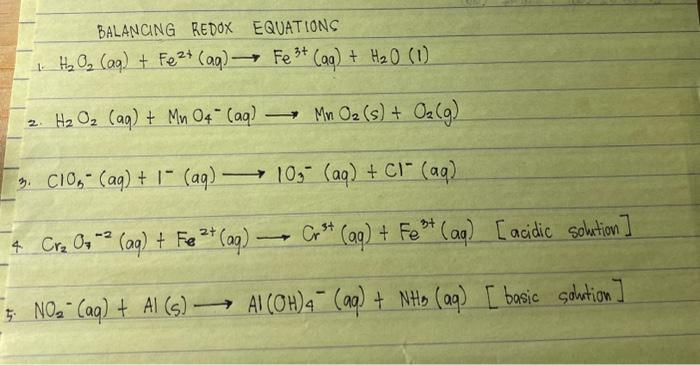 BALANCING REDOX EQUATIONS
1. H₂O₂ (aq) + Fe²⁺ (aq) → Fe³⁺ (aq) + H₂O (l)
2. H₂O₂ (aq) + MnO₄⁻ (aq) → MnO₂(s) + O₂(g)
3. ClO₃⁻ (aq) + I⁻ (aq) → IO₃⁻ (aq) + Cl⁻ (aq)
4. Cr₂O₇⁻² (aq) + Fe²⁺ (aq) → Cr³⁺ (aq) + Fe³⁺ (aq) [acidic solution]
5. NO₂⁻ (aq) + Al (s) → Al(OH)₄⁻ (aq) + NH₃ (aq) [basic solution]